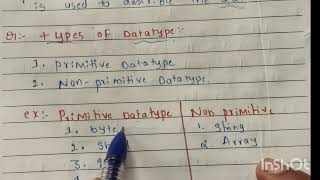 is used to describe the
Q:- + types of Datatype:-
1. primitive Datatype
2. Non-primitive Datatype
ex:- Primitive Datatype | Non primitive
1. byte | 1. string
2. sh | 2. Array
3.
InShOt